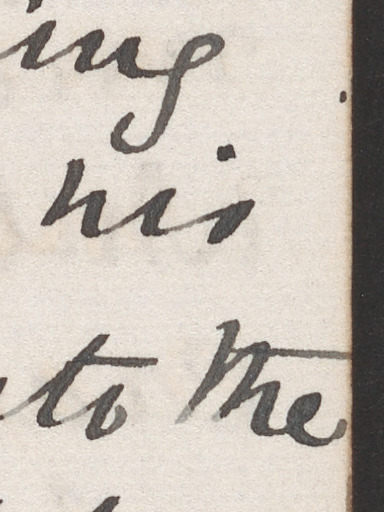 ing
his
to the